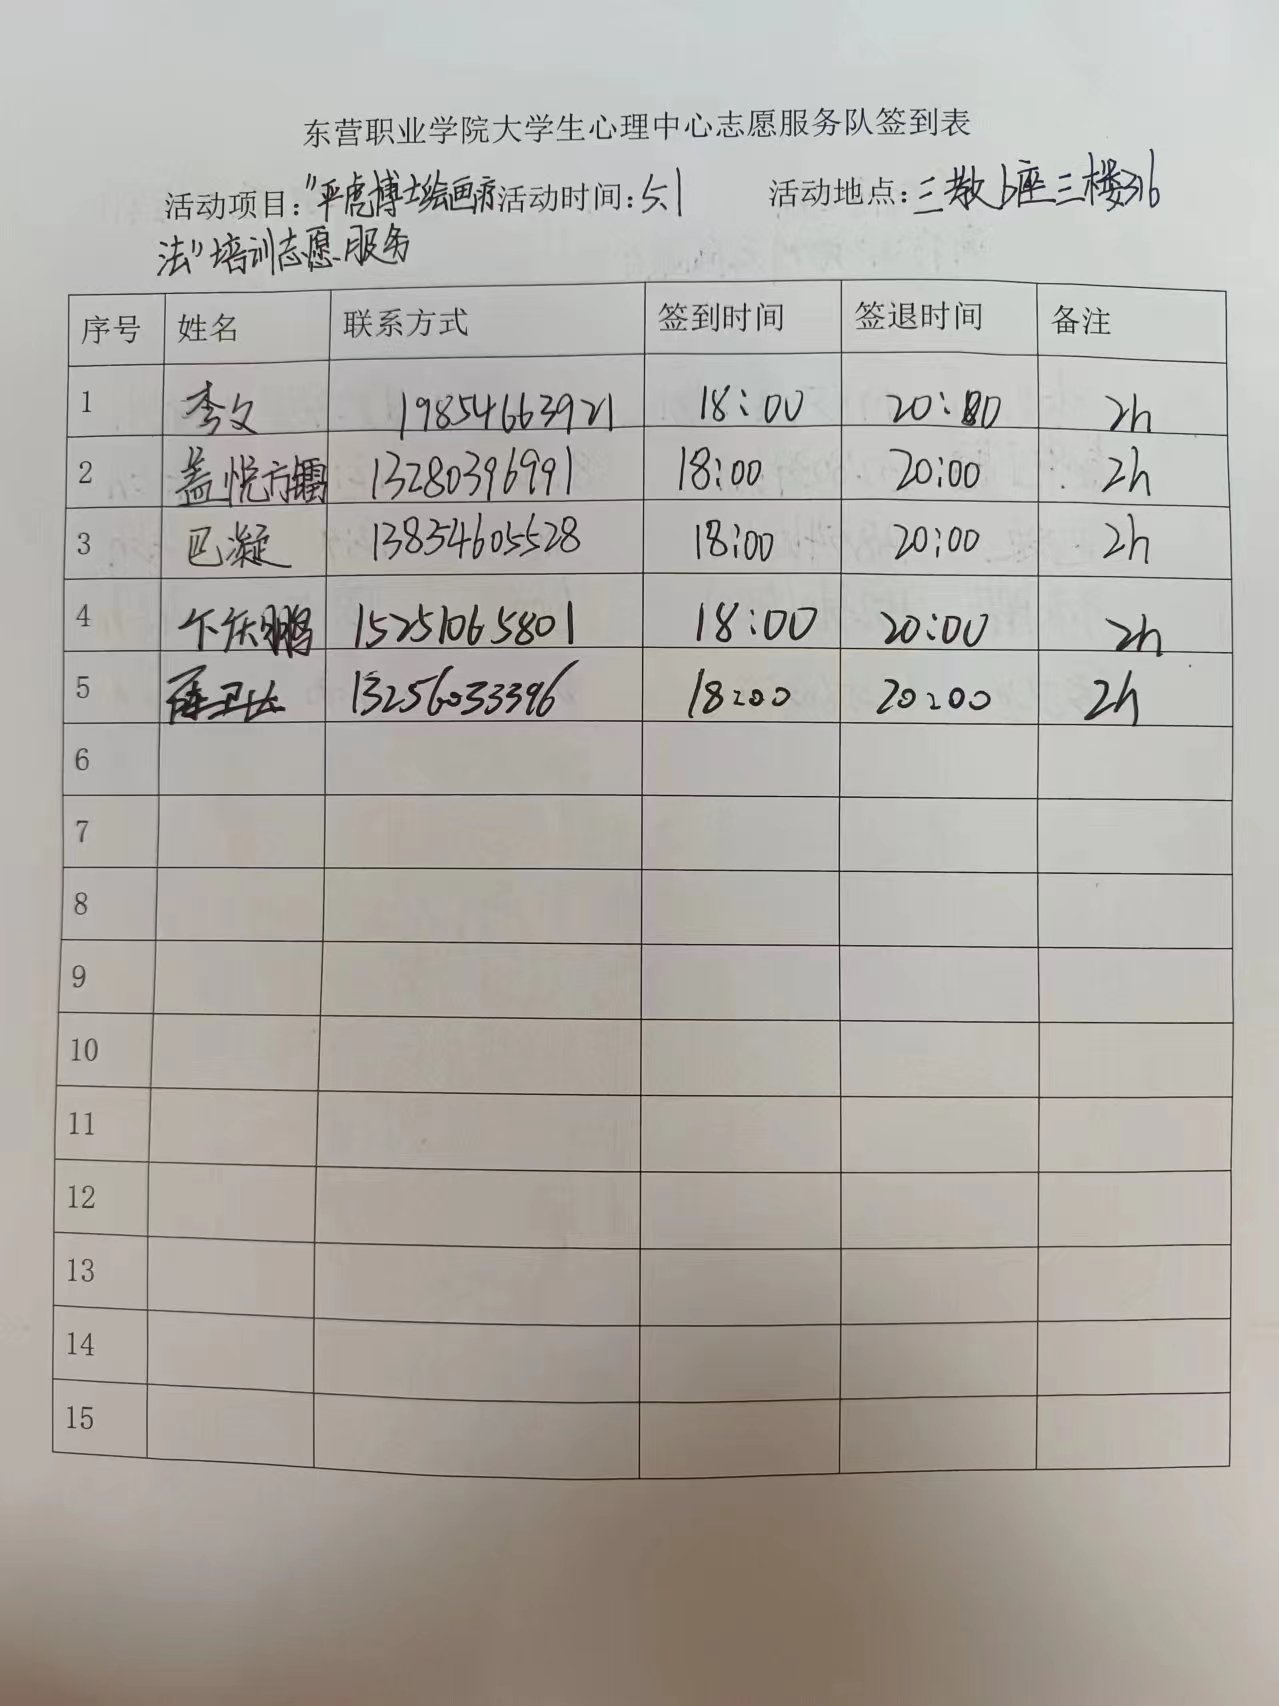 东营职业学院大学生心理中心志愿服务队签到表
活动项目："平虎博士绘画疗 活动时间：5.1 活动地点：三教b座三楼316
法"培训志愿服务
序号 姓名 联系方式 签到时间 签退时间 备注
1 李文 19854663921 18:00 20:00 2h
2 盖悦 13280396991 18:00 20:00 2h
3 巴凝 13854605528 18:00 20:00 2h
4 卞庆鹏 15251065801 18:00 20:00 2h
5 13256033396 18:00 20:00 2h
6
7
8
9
10
11
12
13
14
15